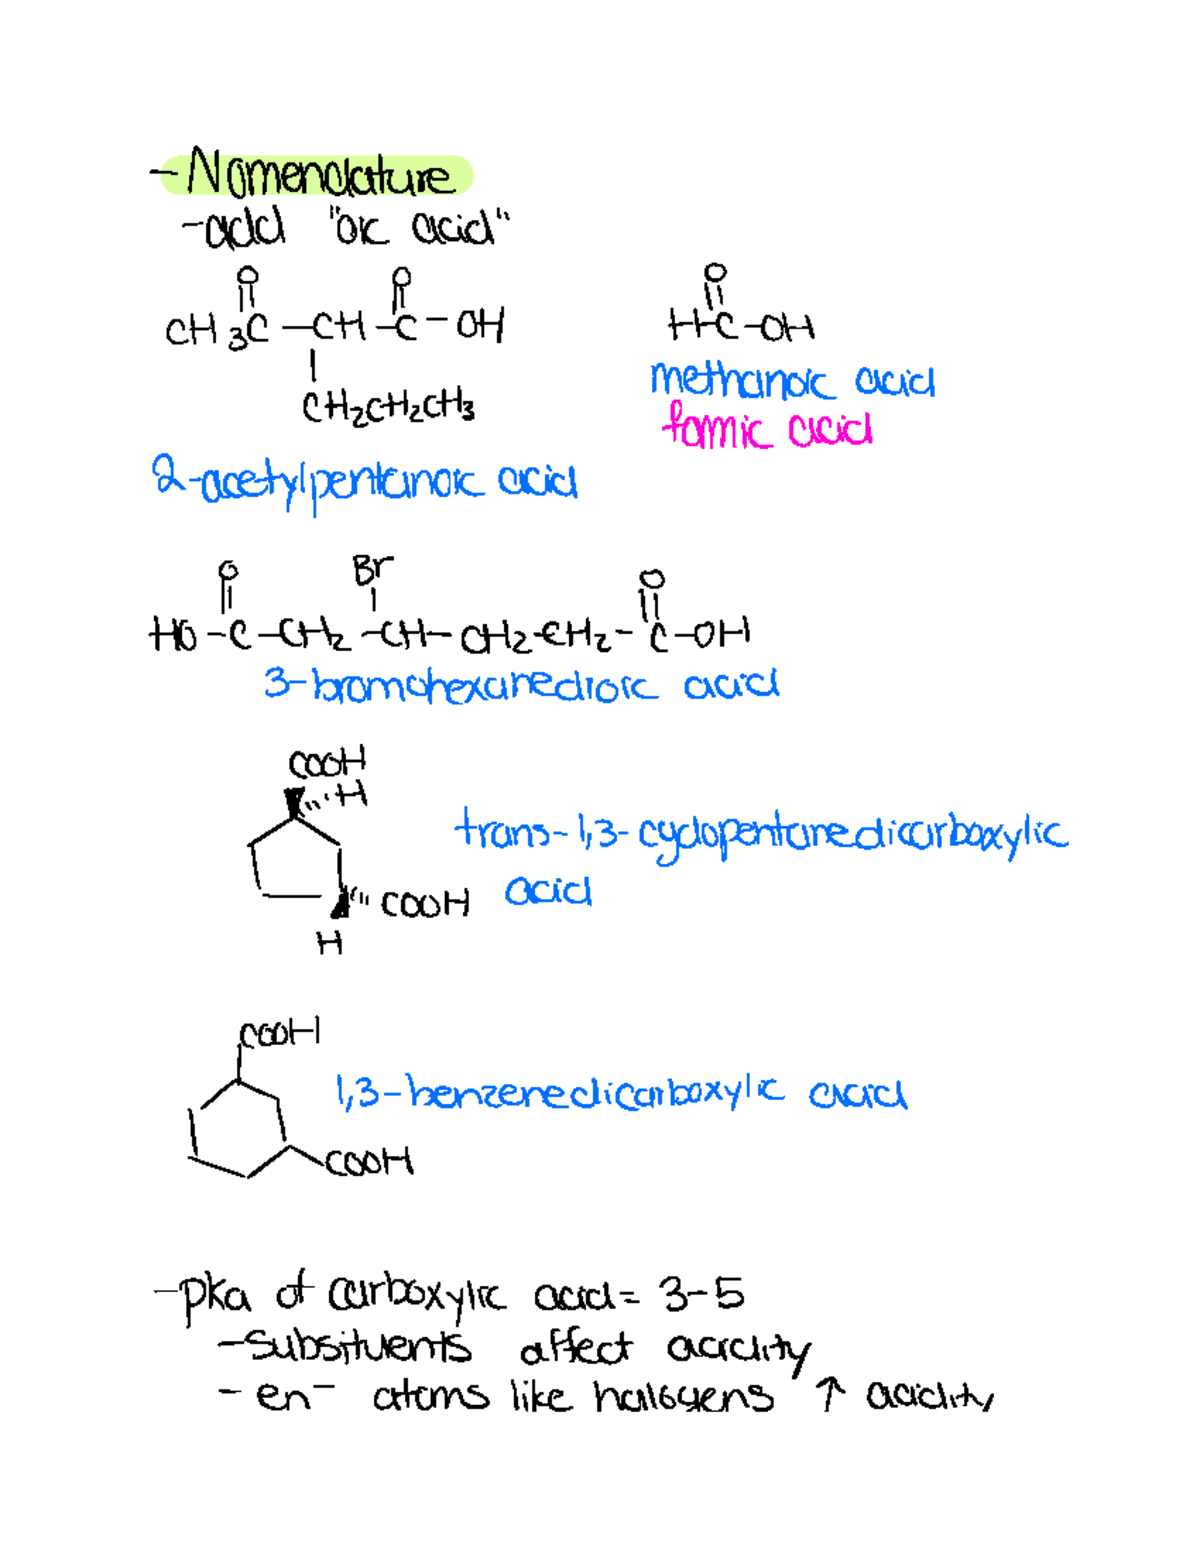 - Nomenclature
- add "oic acid"
O O O
CH3C - CH - C - OH H-C-OH
CH2CH2CH3
methanoic acid
formic acid
2-acetylpentanoic acid
O Br O
HO - C - CH2 - CH - CH2 - CH2 - C - OH
3-bromohexanedioic acid
COOH
H
trans-1,3-cyclopentanedicarboxylic
acid
COOH
H
COOH
1,3-benzenedicarboxylic acid
COOH
- pka of carboxylic acid = 3-5
- Subsituents affect acidity
- en- atoms like halogens ↑ acidity